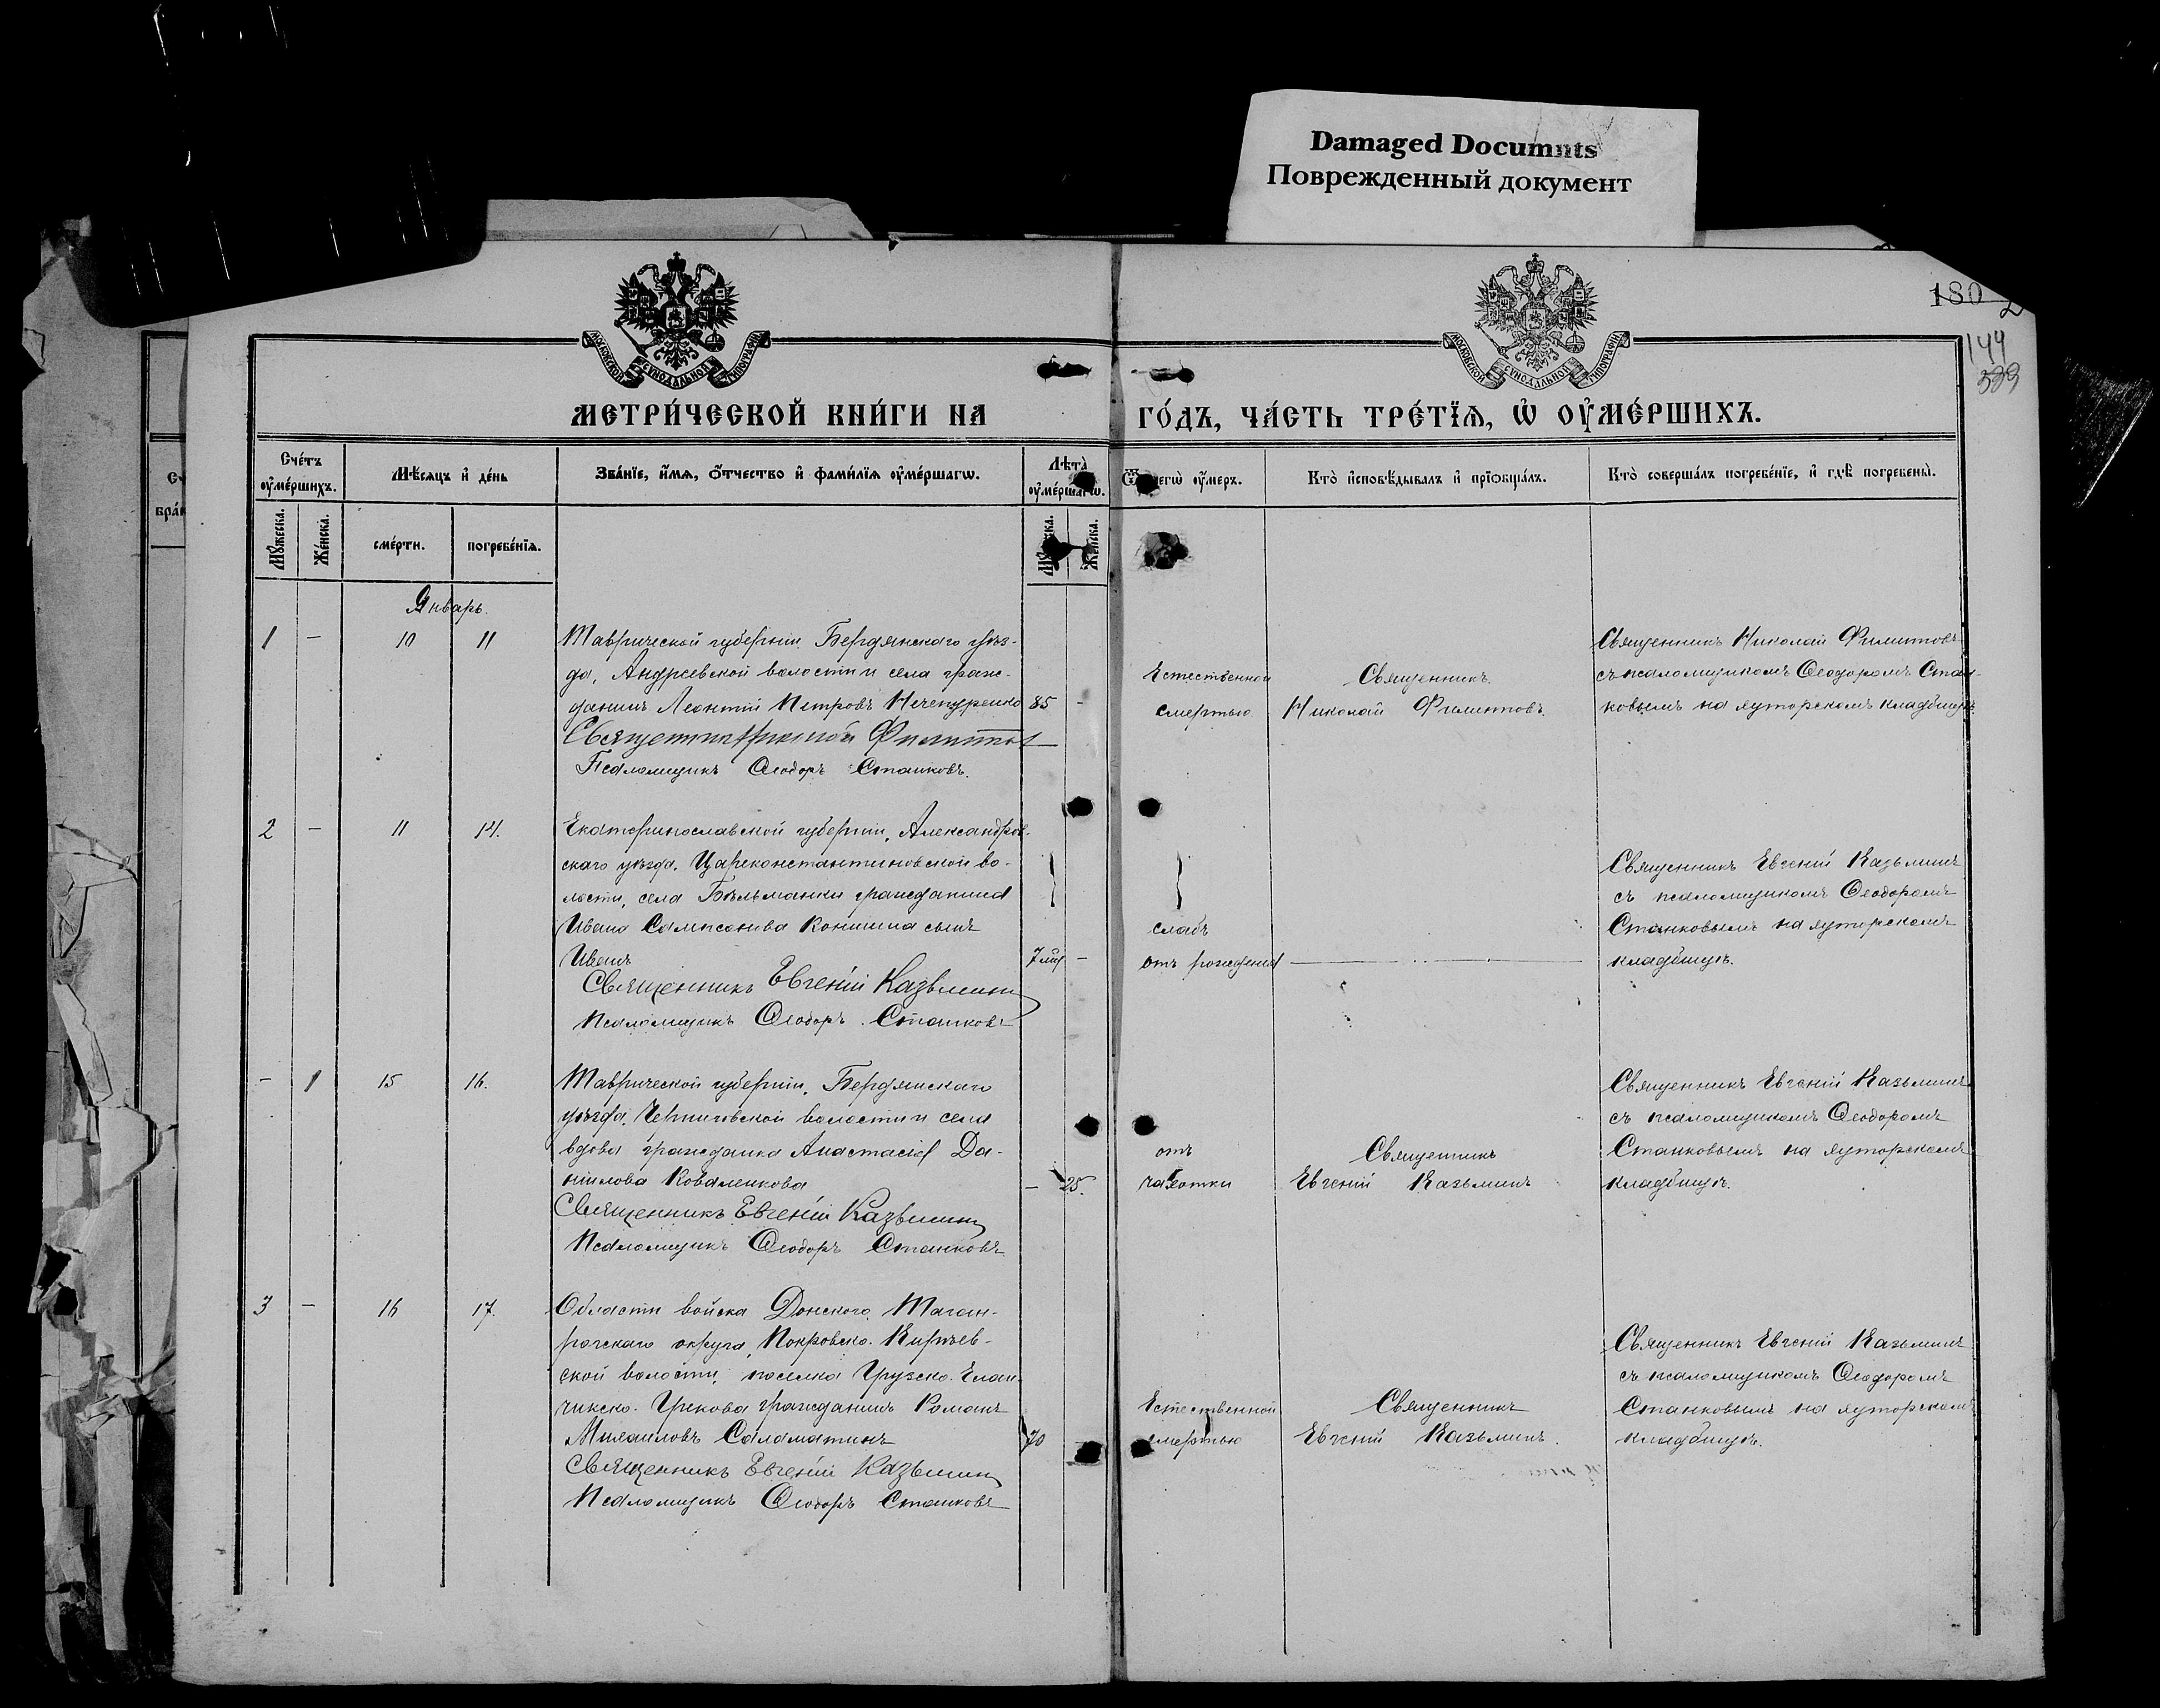 Damaged Documnts
Поврежденный документ
180
2
144
МОСКОВСКОЙ СѴНОДАЛЬНОЙ ТИПОГРАФІИ
МОСКОВСКОЙ СѴНОДАЛЬНОЙ ТИПОГРАФІИ
МЕТРИ́ЧЕСКОЙ КНИ́ГИ НА
ГО́ДЪ, ЧА́СТЬ ТРЕ́ТЇѦ, Ѡ҆ ОУ҆МЕ́РШИХЪ.
Сче́тъ оу҆ме́ршихъ.
Мѣ́сяцъ и҆ де́нь
Зва́нїе, и҆́мѧ, ѻ҆́тчество и҆ фами́лїѧ оу҆ме́ршагѡ.
Лѣ́та оу҆ме́ршагѡ.
Ѿ чегѡ̀ оу҆́меръ.
Кто̀ и҆сповѣ́дывалъ и҆ прїѻбща́лъ.
Кто̀ соверша́лъ погребе́нїе, и҆ гдѣ̀ погребены̀.
Мꙋ́жеска.
Же́нска.
сме́рти.
погребе́нїѧ.
Мꙋ́жеска.
Же́нска.
Январь.
1 - 10 11
Таврической губерніи, Бердянскаго уѣз-
да, Андреевской волости и села граж-
данинъ Леонтій Петровъ Нечепуренко 85 -
Священникъ Николай Филиппов
Псаломщикъ Ѳеодоръ Станковъ.
Естественной
смертью
Священникъ
Николай Филипповъ.
Священникъ Николай Филипповъ
съ псаломщикомъ Ѳеодоромъ Стан-
ковымъ на хуторскомъ кладбищѣ.
2 - 11 14.
Екатеринославской губерніи, Александров-
скаго уѣзда, Цареконстантиновской во-
лости, села Бѣльманки гражданина
Ивана Сампсонова Конишина сынъ
Иванъ 7 мѣс -
Священникъ Евгеній Казьмин
Псаломщикъ Ѳеодоръ Станковъ
слабъ
отъ рожденія
Священникъ Евгеній Казьминъ
съ псаломщикомъ Ѳеодоромъ
Станковымъ на хуторскомъ
кладбищѣ.
- 1 15 16.
Таврической губерніи, Бердянскаго
уѣзда, Черниговской волости и села
вдова гражданка Анастасія Да-
нилова Коваленкова - 25.
Священникъ Евгеній Казьмин
Псаломщикъ Ѳеодоръ Станковъ
отъ
чахотки
Священникъ
Евгеній Казьминъ
Священникъ Евгеній Казьминъ
съ псаломщикомъ Ѳеодоромъ
Станковымъ на хуторскомъ
кладбищѣ.
3 - 16 17.
Области войска Донского, Таган-
рогскаго округа, Покровско-Кирѣев-
ской волости, поселка Грузско-Елан-
чикско-Грекова гражданинъ Романъ
Михаиловъ Саламатинъ 70
Священникъ Евгеній Казьмин
Псаломщикъ Ѳеодоръ Станковъ
Естественной
смертью
Священникъ
Евгеній Казьминъ.
Священникъ Евгеній Казьминъ
съ псаломщикомъ Ѳеодоромъ
Станковымъ на хуторскомъ
кладбищѣ.